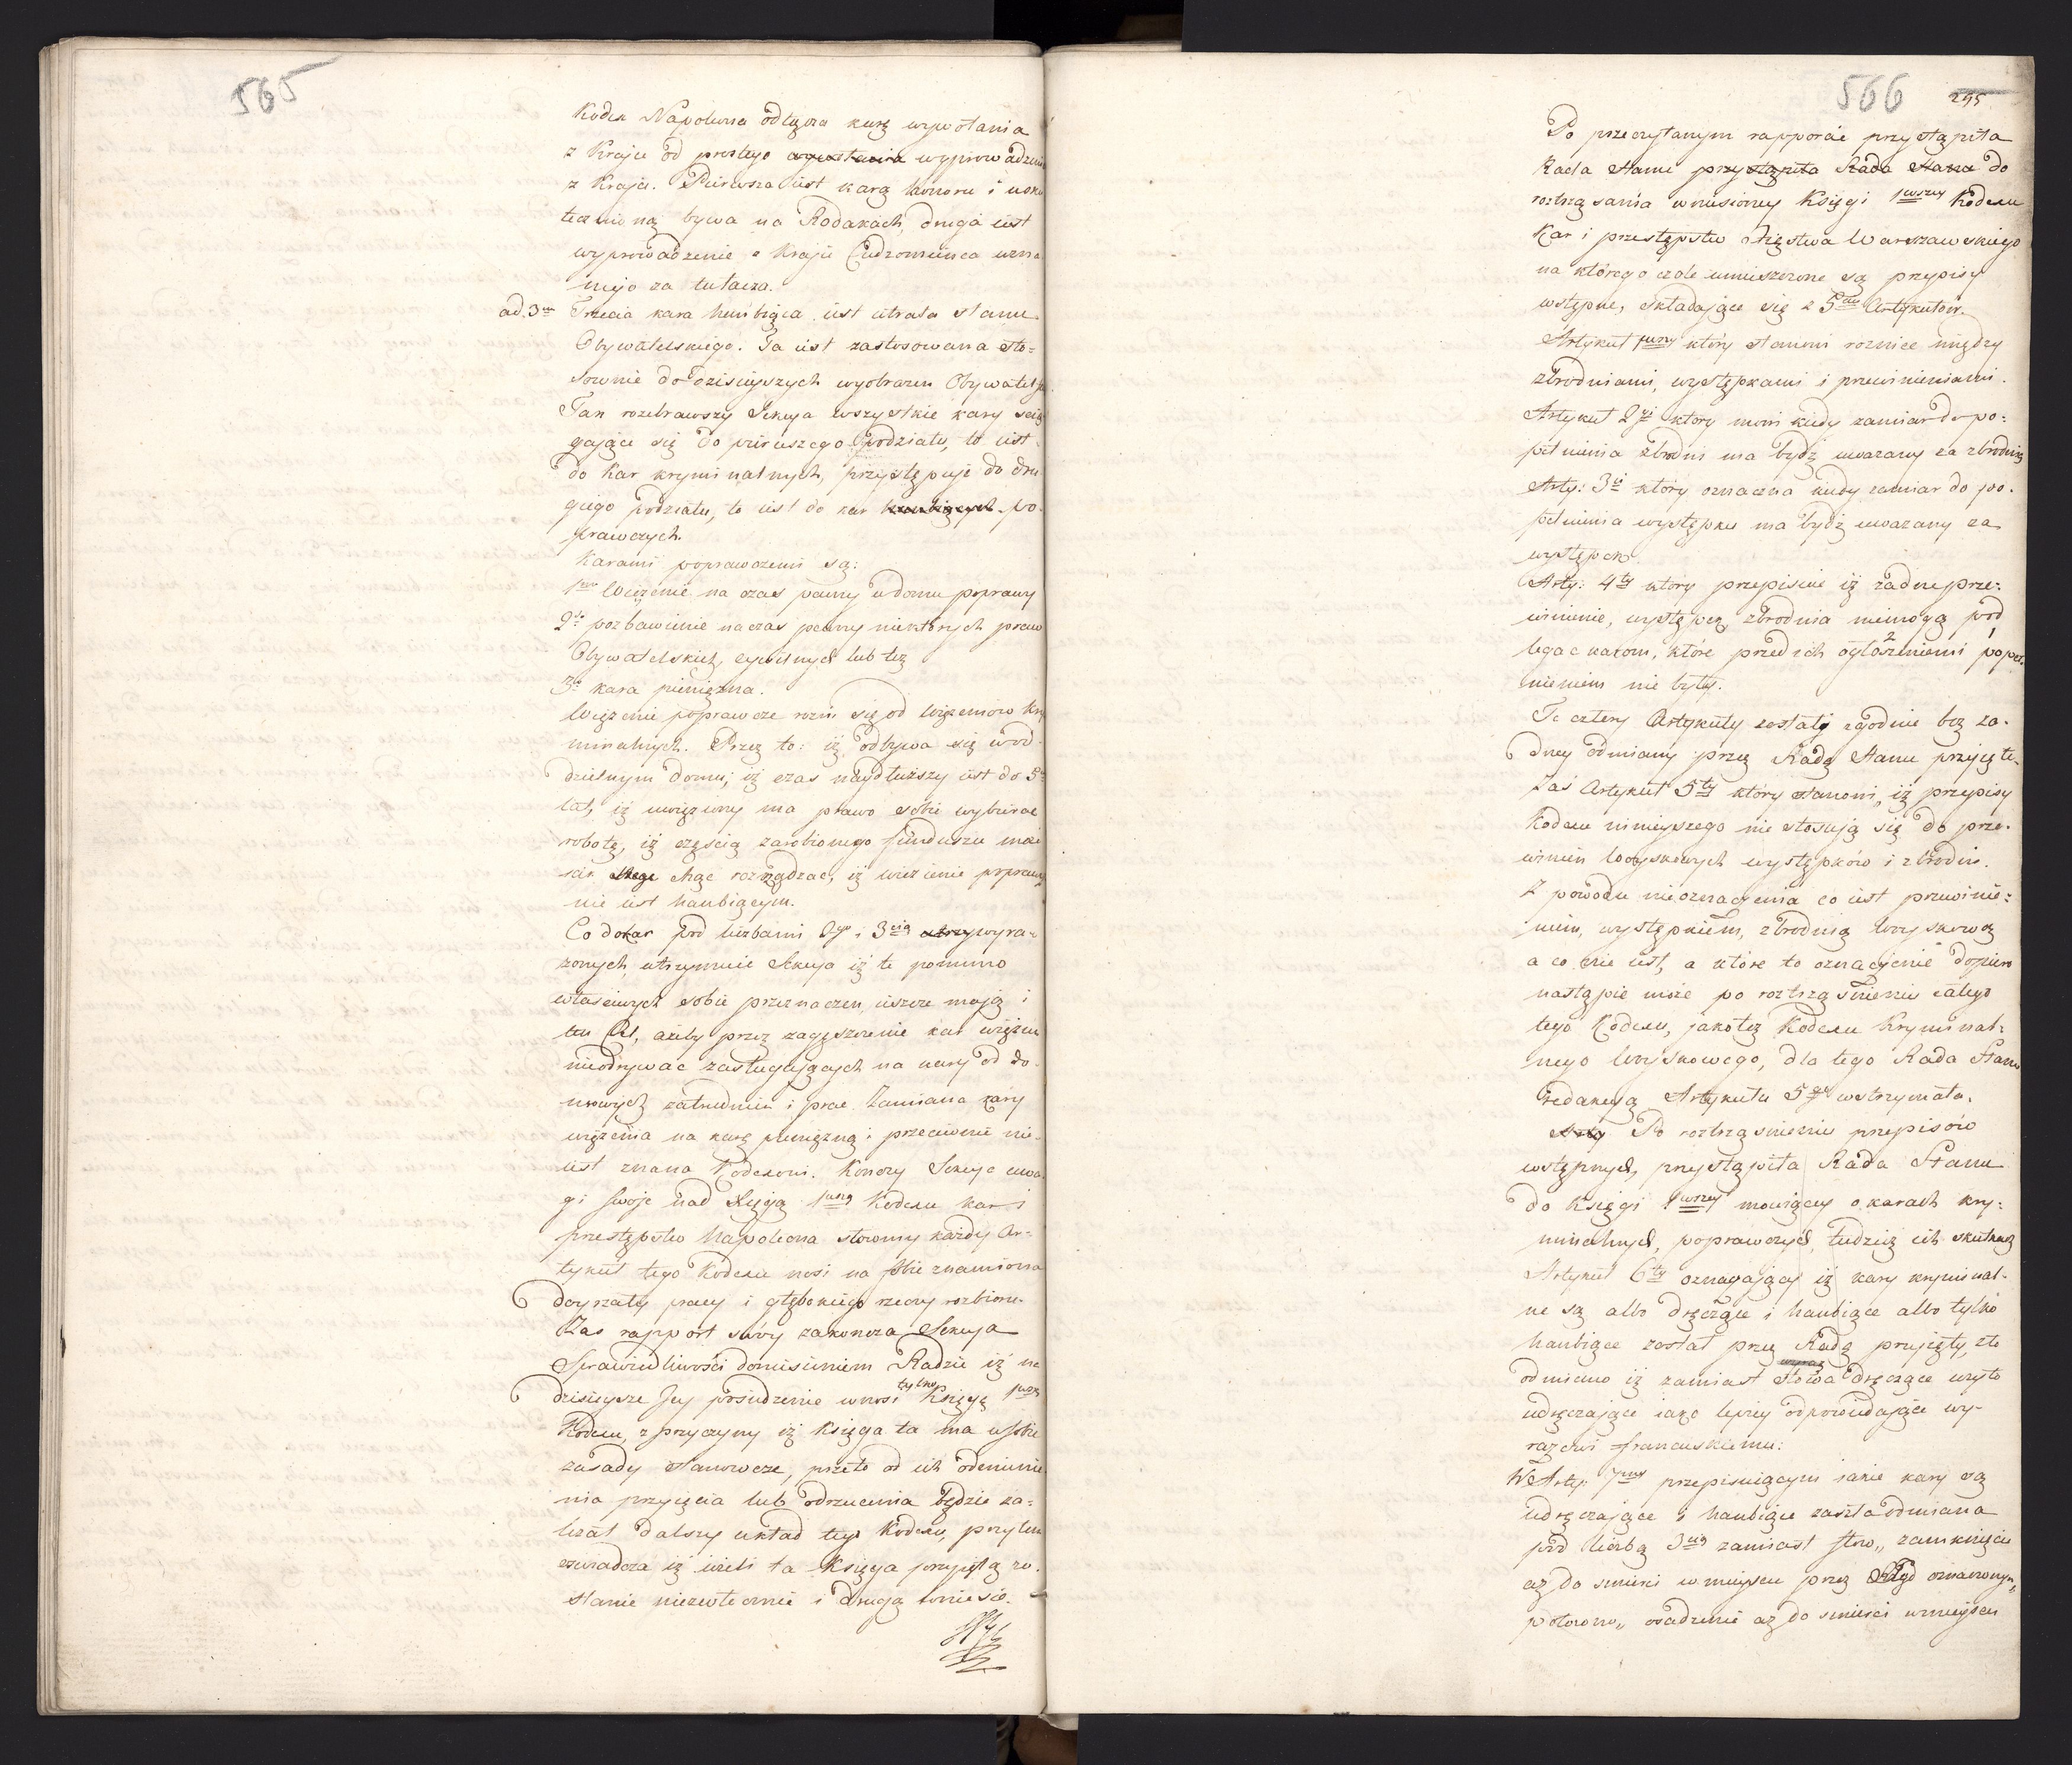 565
Kodex Napoleona odłącza karę wywołania
z Kraju od prostego wywołania wyprowadzenia
z Kraju. Pierwsza iest karą honoru i usku
tecznioną bywa na Rodakach, druga iest
wyprowadzenie z Kraju Cudzoziemca uzna
nego za tułacza.
ad. 3um Trzecia kara hańbiąca iest utrata stanu
Obywatelskiego. Ta iest zastosowana sto=
sownie do dzisieyszych wyobrażeń Obywatel
Tak rozebrawszy Sekcya wszystkie kary ścią
gaiące się do pierwszego podziału, to iest
do kar kryminalnych, przystępuje do dru
giego podziału, to iest do kar hańbiących po-
prawczych.
Karami poprawczemi są:
1mo Więzienie na czas pewny w domu poprawy
2do pozbawienie na czas pewny niektórych praw
Obywatelskich, cywilnych lub też
3o kara pieniężna.
Więzienie poprawcze rożni się od więzieniow kry
minalnych. Przez to: iż odbywa się w od-
dzielnym domu; iż czas naydłuższy iest do 5u
lat, iż uwięziony ma prawo sobie wybierać
robotę, iż częścią zarobionego funduszu może
rozrządzać, iż więzienie poprawcze
nie iest hańbiącym.
Co do kar pod liczbami 2go i 3cią wyra=
żonych utrzymuie Sekcya iż te pomimo
właściwych sobie przeznaczeń, ieszcze mają i
ten Cel, ażeby przez zagęszczenie kar więzien
nieodrywać zasługujących na kary od do-
mowych zatrudnień i prac. Zamiana kary
więzienia na karę pieniężną i przeciwnie nie-
iest znana Kodexowi. Kończy Sekcya uwa
gi swoje nad Xięgą 1wszą Kodexu kar i
przestępstw Napoleona słowmy każdy Ar=
tykuł tego Kodexu nosi na sobie znamiona
doyrzałey pracy i głębokiego rzeczy rozbioru.
Zaś rapport swóy zakończa Sekcya
Sprawiedliwości doniesieniem Radzie iż na
dzisieysze Jey posiedzenie wnosi tylko Księgę 1wszą
Kodexu, z przyczyny iż Księga ta ma w sobie
zasady stanowcze, przeto od ich odmienie
nia przyięcia lub odrzucenia będzie za=
leżał dalszy układ tego Kodexu, przytem
oświadcza iż ieżeli ta Księga przyiętą zo-
stanie niezwłocznie i drugą wniesie.
566
295
Po przeczytanym rapporcie przystąpiła
Rada Stanu przystąpiła Rada Stanu do
roztrząsania wniesioney Księgi 1wszey Kodexu
Kar i przestępstw Xięstwa Warszawskiego
na którego czele umieszczone są przepisy
wstępne, składające się z 5ciu Artykułów.
Artykuł 1wszy który stanowi roznice między
zbrodniami, występkami i przewinieniami.
Artykuł 2gi który mowi kiedy zamiar do po=
pełnienia zbrodni ma bydź uważany za zbrodnię
Arty: 3ci który oznacza kiedy zamiar do po-
pełnienia występku ma bydź uważany za
występek.
Arty: 4ty który przepisuie iż żadne prze=
winienie, występek, zbrodnia niemogą pod
legać karom, które przed ich ogłoszeniem popeł
nieniem nie były.
Te cztery Artykuły zostały zgodnie bez ża-
dney odmiany przez Radę Stanu przyięte.
Zaś Artykuł 5ty który stanowi, iż przepisy
Kodexu ninieyszego nie stosują się do prze-
winień woyskowych występków i zbrodni.
Z powodu nieoznaczenia co iest przewinie=
niem, występkiem, zbrodnią woyskową
a co nie iest, a które to oznaczenie dopiero
nastąpić może po roztrząśnieniu całego
tego Kodexu, jakoteż Kodexu Kryminal=
nego Woyskowego, dla tego Rada Stanu
redakcyą Artykułu 5go wstrzymała.
Arty Po roztrząśnieniu przepisów
wstępnych, przystąpiła Rada Stanu
do Księgi 1wszey mowiącey o karach kry=
minalnych, poprawczych, tudzież ich skutkach
Artykuł 6ty oznaczający iż kary kryminal-
ne są albo dręczące i hańbiące albo tylko
hańbiące został przez Radę przyięty, z tą
odmianą iż zamiast słowa wyraz dręczące użyto
udręczające iako lepiey odpowiedające wy-
razowi francuskiemu:
W Arty: 7mym przepisuiącym iakie kary są
udręczające i hańbiące zaszła odmiana
pod liczbą 3cią zamiast słow „zamknięcie
aż do śmierci w mieyscu przez Rząd oznaczonym„
położono „osadzenie aż do śmierci w mieyscu